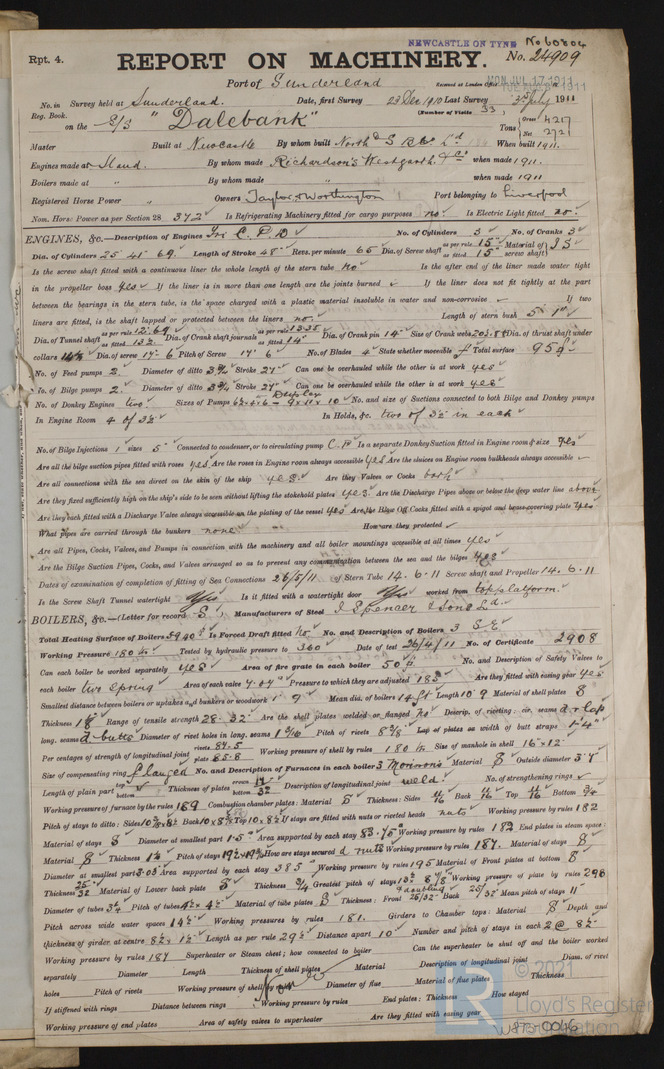 NEWCASTLE ON TYNE No 60804
Rpt. 4. REPORT ON MACHINERY. No. 24909
Port of Sunderland Received at London Office MON. JUL. 17 1911
No. in Survey held at Sunderland. Date, first Survey 23 Dec 1910 Last Survey 3rd July 1911
Reg. Book. (Number of Visits 33,
on the S/S "Dalebank" Tons Gross 4217 Net 2721
Master Built at Newcastle By whom built North S R Co Ld When built 1911.
Engines made at Sland. By whom made Richardsons Westgarth & Co when made 1911.
Boilers made at " By whom made " when made 1911
Registered Horse Power Owners Taylor & Worthington Port belonging to Liverpool
Nom. Horse Power as per Section 28 372 Is Refrigerating Machinery fitted for cargo purposes no. Is Electric Light fitted no.
ENGINES, &c.—Description of Engines Tri C. P. D No. of Cylinders 3 No. of Cranks 3
Dia. of Cylinders 25" 41" 69. Length of Stroke 48" Revs. per minute 65 Dia. of Screw shaft as per rule 15" as fitted 15" Material of screw shaft I S
Is the screw shaft fitted with a continuous liner the whole length of the stern tube no Is the after end of the liner made water tight
in the propeller boss yes If the liner is in more than one length are the joints burned If the liner does not fit tightly at the part
between the bearings in the stern tube, is the space charged with a plastic material insoluble in water and non-corrosive If two
liners are fitted, is the shaft lapped or protected between the liners no. Length of stern bush 5' 1"
Dia. of Tunnel shaft as per rule 12.69 as fitted 13½ Dia. of Crank shaft journals as per rule 13.35 as fitted 14" Dia. of Crank pin 14" Size of Crank webs Dia. of thrust shaft under
collars 14½ Dia. of screw 17'- 6 Pitch of Screw 17' 6" No. of Blades 4 State whether moveable Total surface 95
No. of Feed pumps 2. Diameter of ditto 3¾ Stroke 27" Can one be overhauled while the other is at work yes
No. of Bilge pumps 2. Diameter of ditto 3¾ Stroke 27" Can one be overhauled while the other is at work yes
No. of Donkey Engines two. Sizes of Pumps Duplex No. and size of Suctions connected to both Bilge and Donkey pumps
In Engine Room 4 of 3½" In Holds, &c. two of 3½ in each
No. of Bilge Injections 1 sizes 5" Connected to condenser, or to circulating pump C. P. Is a separate Donkey Suction fitted in Engine room & size yes
Are all the bilge suction pipes fitted with roses yes Are the roses in Engine room always accessible yes Are the sluices on Engine room bulkheads always accessible
Are all connections with the sea direct on the skin of the ship yes. Are they Valves or Cocks both
Are they fixed sufficiently high on the ship's side to be seen without lifting the stokehold plates yes Are the Discharge Pipes above or below the deep water line above
Are they each fitted with a Discharge Valve always accessible on the plating of the vessel yes Are the Blow Off Cocks fitted with a spigot and brass covering plate yes
What pipes are carried through the bunkers none How are they protected
Are all Pipes, Cocks, Valves, and Pumps in connection with the machinery and all boiler mountings accessible at all times yes
Are the Bilge Suction Pipes, Cocks, and Valves arranged so as to prevent any communication between the sea and the bilges yes
Dates of examination of completion of fitting of Sea Connections 26/5/11 of Stern Tube 14. 6. 11 Screw shaft and Propeller 14. 6. 11
Is the Screw Shaft Tunnel watertight Yes Is it fitted with a watertight door Yes worked from top platform.
BOILERS, &c.—(Letter for record S.) Manufacturers of Steel J Spencer & Sons Ld.
Total Heating Surface of Boilers 5940 Is Forced Draft fitted no No. and Description of Boilers 3 S. E.
Working Pressure 180 Tested by hydraulic pressure to 360 Date of test 26/4/11 No. of Certificate 2908
Can each boiler be worked separately yes Area of fire grate in each boiler 50 No. and Description of Safety Valves to
each boiler two Spring Area of each valve Pressure to which they are adjusted 185 Are they fitted with easing gear yes
Smallest distance between boilers or uptakes and bunkers or woodwork 1' 9" Mean dia. of boilers Length 10 9 Material of shell plates S
Thickness Range of tensile strength 28. 32 Are the shell plates welded or flanged no Descrip. of riveting: cir. seams d r lap
long. seams d. butts Diameter of rivet holes in long. seams 1 3/16 Pitch of rivets 8 5/8 Lap of plates or width of butt straps 1'-4"
Per centages of strength of longitudinal joint rivets 87.5 plate 85.8 Working pressure of shell by rules 180 Size of manhole in shell 16" x 12"
Size of compensating ring flanged No. and Description of Furnaces in each boiler 3 Morisons Material S Outside diameter 3' 7"
Length of plain part top bottom Thickness of plates crown bottom Description of longitudinal joint weld. No. of strengthening rings
Working pressure of furnace by the rules 189 Combustion chamber plates: Material S Thickness: Sides 11/16 Back 11/16 Top 11/16 Bottom
Pitch of stays to ditto: Sides Back Top If stays are fitted with nuts or riveted heads nuts Working pressure by rules 182
Material of stays S Diameter at smallest part Area supported by each stay 83.75 Working pressure by rules 182 End plates in steam space:
Material S Thickness Pitch of stays How are stays secured d nuts Working pressure by rules 187. Material of stays S
Diameter at smallest part Area supported by each stay 385 Working pressure by rules 195 Material of Front plates at bottom S
Thickness 25/32 Material of Lower back plate S Thickness 3/4 Greatest pitch of stays Working pressure of plate by rules
Diameter of tubes 3¼ Pitch of tubes 4½ x 4½ Material of tube plates S Thickness: Front 25/32 Back 25/32 Mean pitch of stays 11"
Pitch across wide water spaces 14½ Working pressures by rules 181. Girders to Chamber tops: Material S Depth and
thickness of girder at centre Length as per rule 29½ Distance apart 10 Number and pitch of stays in each 2 @ 8½
Working pressure by rules 187 Superheater or Steam chest; how connected to boiler Can the superheater be shut off and the boiler worked
separately Diameter Length Thickness of shell plates Material Description of longitudinal joint Diam. of rivet
holes Pitch of rivets Working pressure of shell by rules Diameter of flue Material of flue plates Thickness
If stiffened with rings Distance between rings Working pressure by rules End plates: Thickness How stayed
Working pressure of end plates Area of safety valves to superheater Are they fitted with easing gear
None
© 2021
Lloyd's Register
Foundation
W873-0046